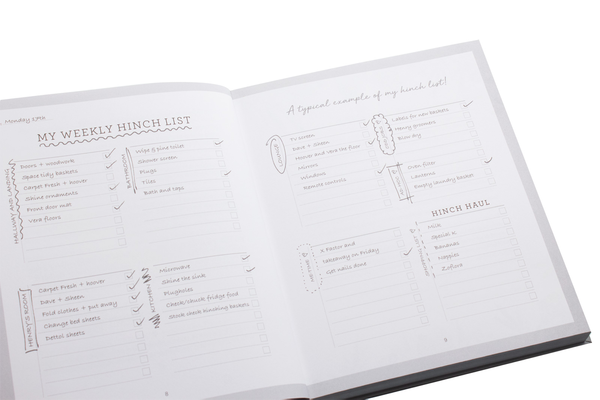 Monday 29th
MY WEEKLY HINCH LIST
HALLWAY AND LANDING
Doors + woodwork
Spare tidy baskets
Carpet Fresh + hoover
Shine ornaments
Front door mat
Vera floors
BATHROOM
Wipe + pine toilet
Shower screen
Plugs
Tiles
Bath and taps
HENRY'S ROOM
Carpet Fresh + hoover
Dave + Sheen
Fold clothes + put away
Change bed sheets
Dettol sheets
KITCHEN
Microwave
Shine the sink
Plugholes
Check/chuck fridge food
Stock check Hinching baskets
8
A typical example of my hinch list!
LOUNGE
TV screen
Dave + Sheen
Hoover and Vera the floor
Mirrors
Windows
Remote controls
Labels for new baskets
Henry groomers
Bows day
Oven floor
Lanterns
Empty laundry basket
X Factor and
takeaway on Friday
Get nails done
HINCH HAUL
Milk
Special K
Bananas
Nappies
Zoflora
9